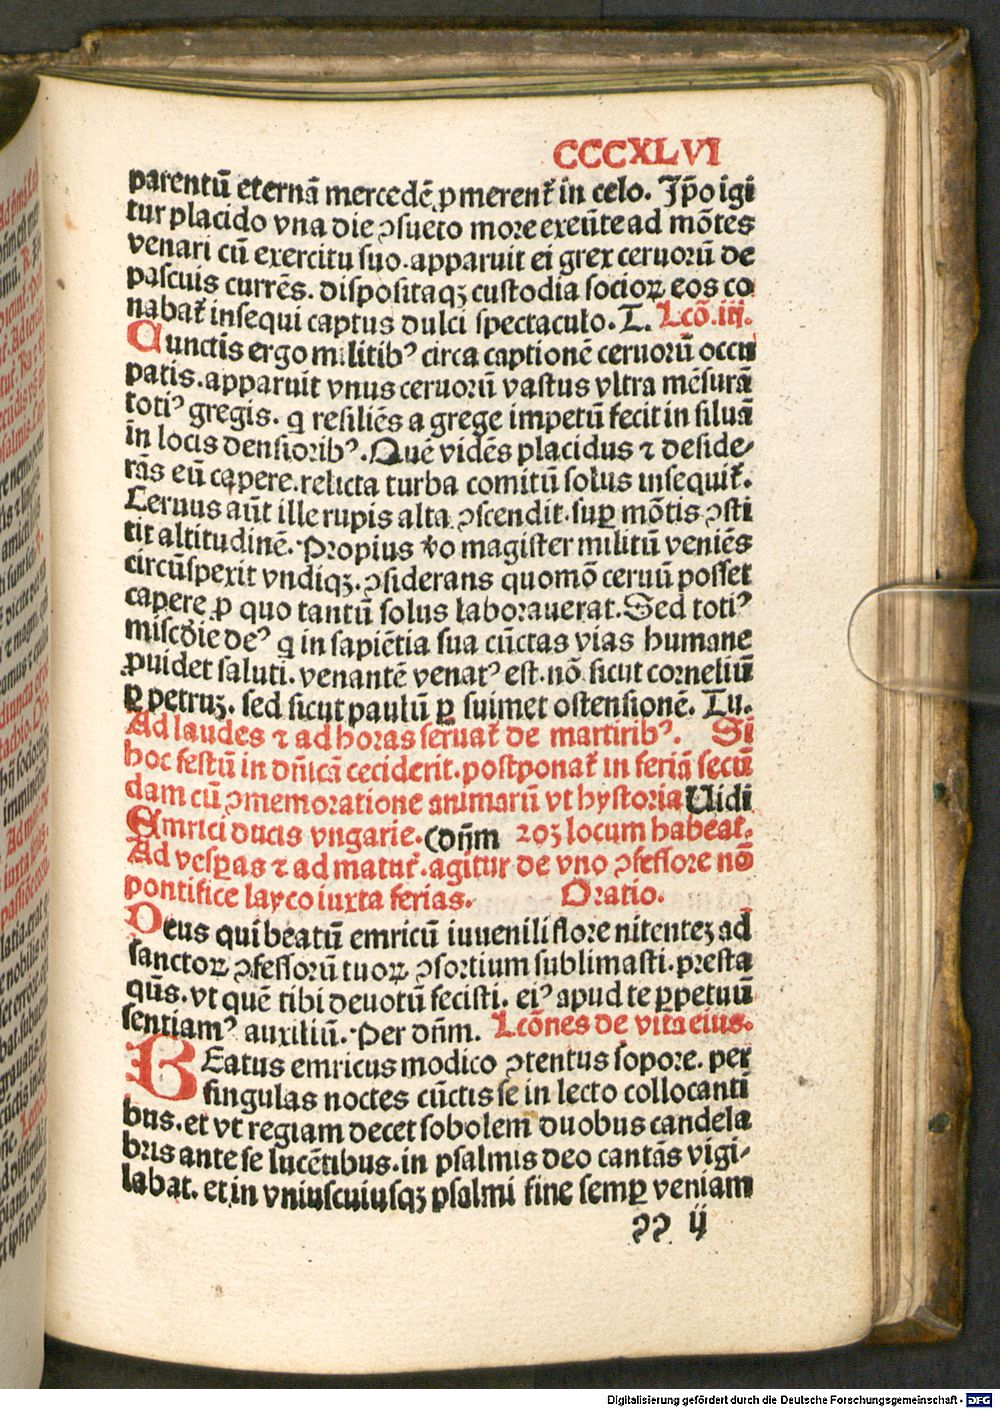 CCCXLVI
parentū eternā mercedē ꝓmerent᷑ in celo. Ip̄o igi
tur placido vna die ↄsueto more exeūte ad mōtes
venari cū exercitu suo. apparuit ei grex ceruorū de
pascuis currēs. dispositaqꝫ custodia socioꝝ eos co
nabat᷑ insequi captus dulci spectaculo. T. Lcō.iij.
Cunctis ergo militibꝰ circa captionē ceruorū occu
patis. apparuit vnus ceruorū vastus vltra mēsurā
totiꝰ gregis. q resiliēs a grege impetū fecit in siluā
in locis densioribꝰ. Quē vidēs placidus ⁊ deside⸗
rās eū capere. relicta turba comitū solus insequit᷑.
Ceruus aūt ille rupis alta ↄscendit. suꝑ mōtis ↄsti
tit altitudinē. Propius v̄o magister militū veniēs
circūspexit vndiqꝫ. ↄsiderans quomō ceruū posset
capere ꝓ quo tantū solus laborauerat. Sed totiꝰ
miscd̄ie deꝰ q in sapiētia sua cūctas vias humane
ꝓuidet saluti. venantē venatꝰ est. nō sicut corneliū
ꝑ petruꝫ. sed sicut paulū ꝑ suimet ostensionē. Tu.
Ad laudes ⁊ ad horas seruat᷑ de martiribꝰ. Si
hoc festū in dn̄icā ceciderit. postponat᷑ in feriā secū
dam cū ↄmemoratione animarū vt hystoria Uidi
Emrici ducis vngarie. (dn̄m roꝝ locum habeat᷑.
Ad vesꝑas ⁊ ad matut᷑. agitur de vno ↄfessore nō
pontifice layco iuxta ferias. Oratio.
Deus qui beatū emricū iuuenili flore nitenteꝫ ad
sanctoꝝ ↄfessorū tuoꝝ ↄsortium sublimasti. presta
qūs. vt quē tibi deuotū fecisti. eiꝰ apud te ꝑpetuū
sentiamꝰ auxiliū. Per dn̄m. Lcōnes de vita eius.
BEatus emricus modico ↄtentus sopore. per
singulas noctes cūctis se in lecto collocanti
bus. et vt regiam decet sobolem duobus candela
bris ante se lucētibus. in psalmis deo cantās vigi⸗
labat. et in vniuscuiusqꝫ psalmi fine semꝑ veniam
ꝛꝛ ij
Digitalisierung gefördert durch die Deutsche Forschungsgemeinschaft - DFG